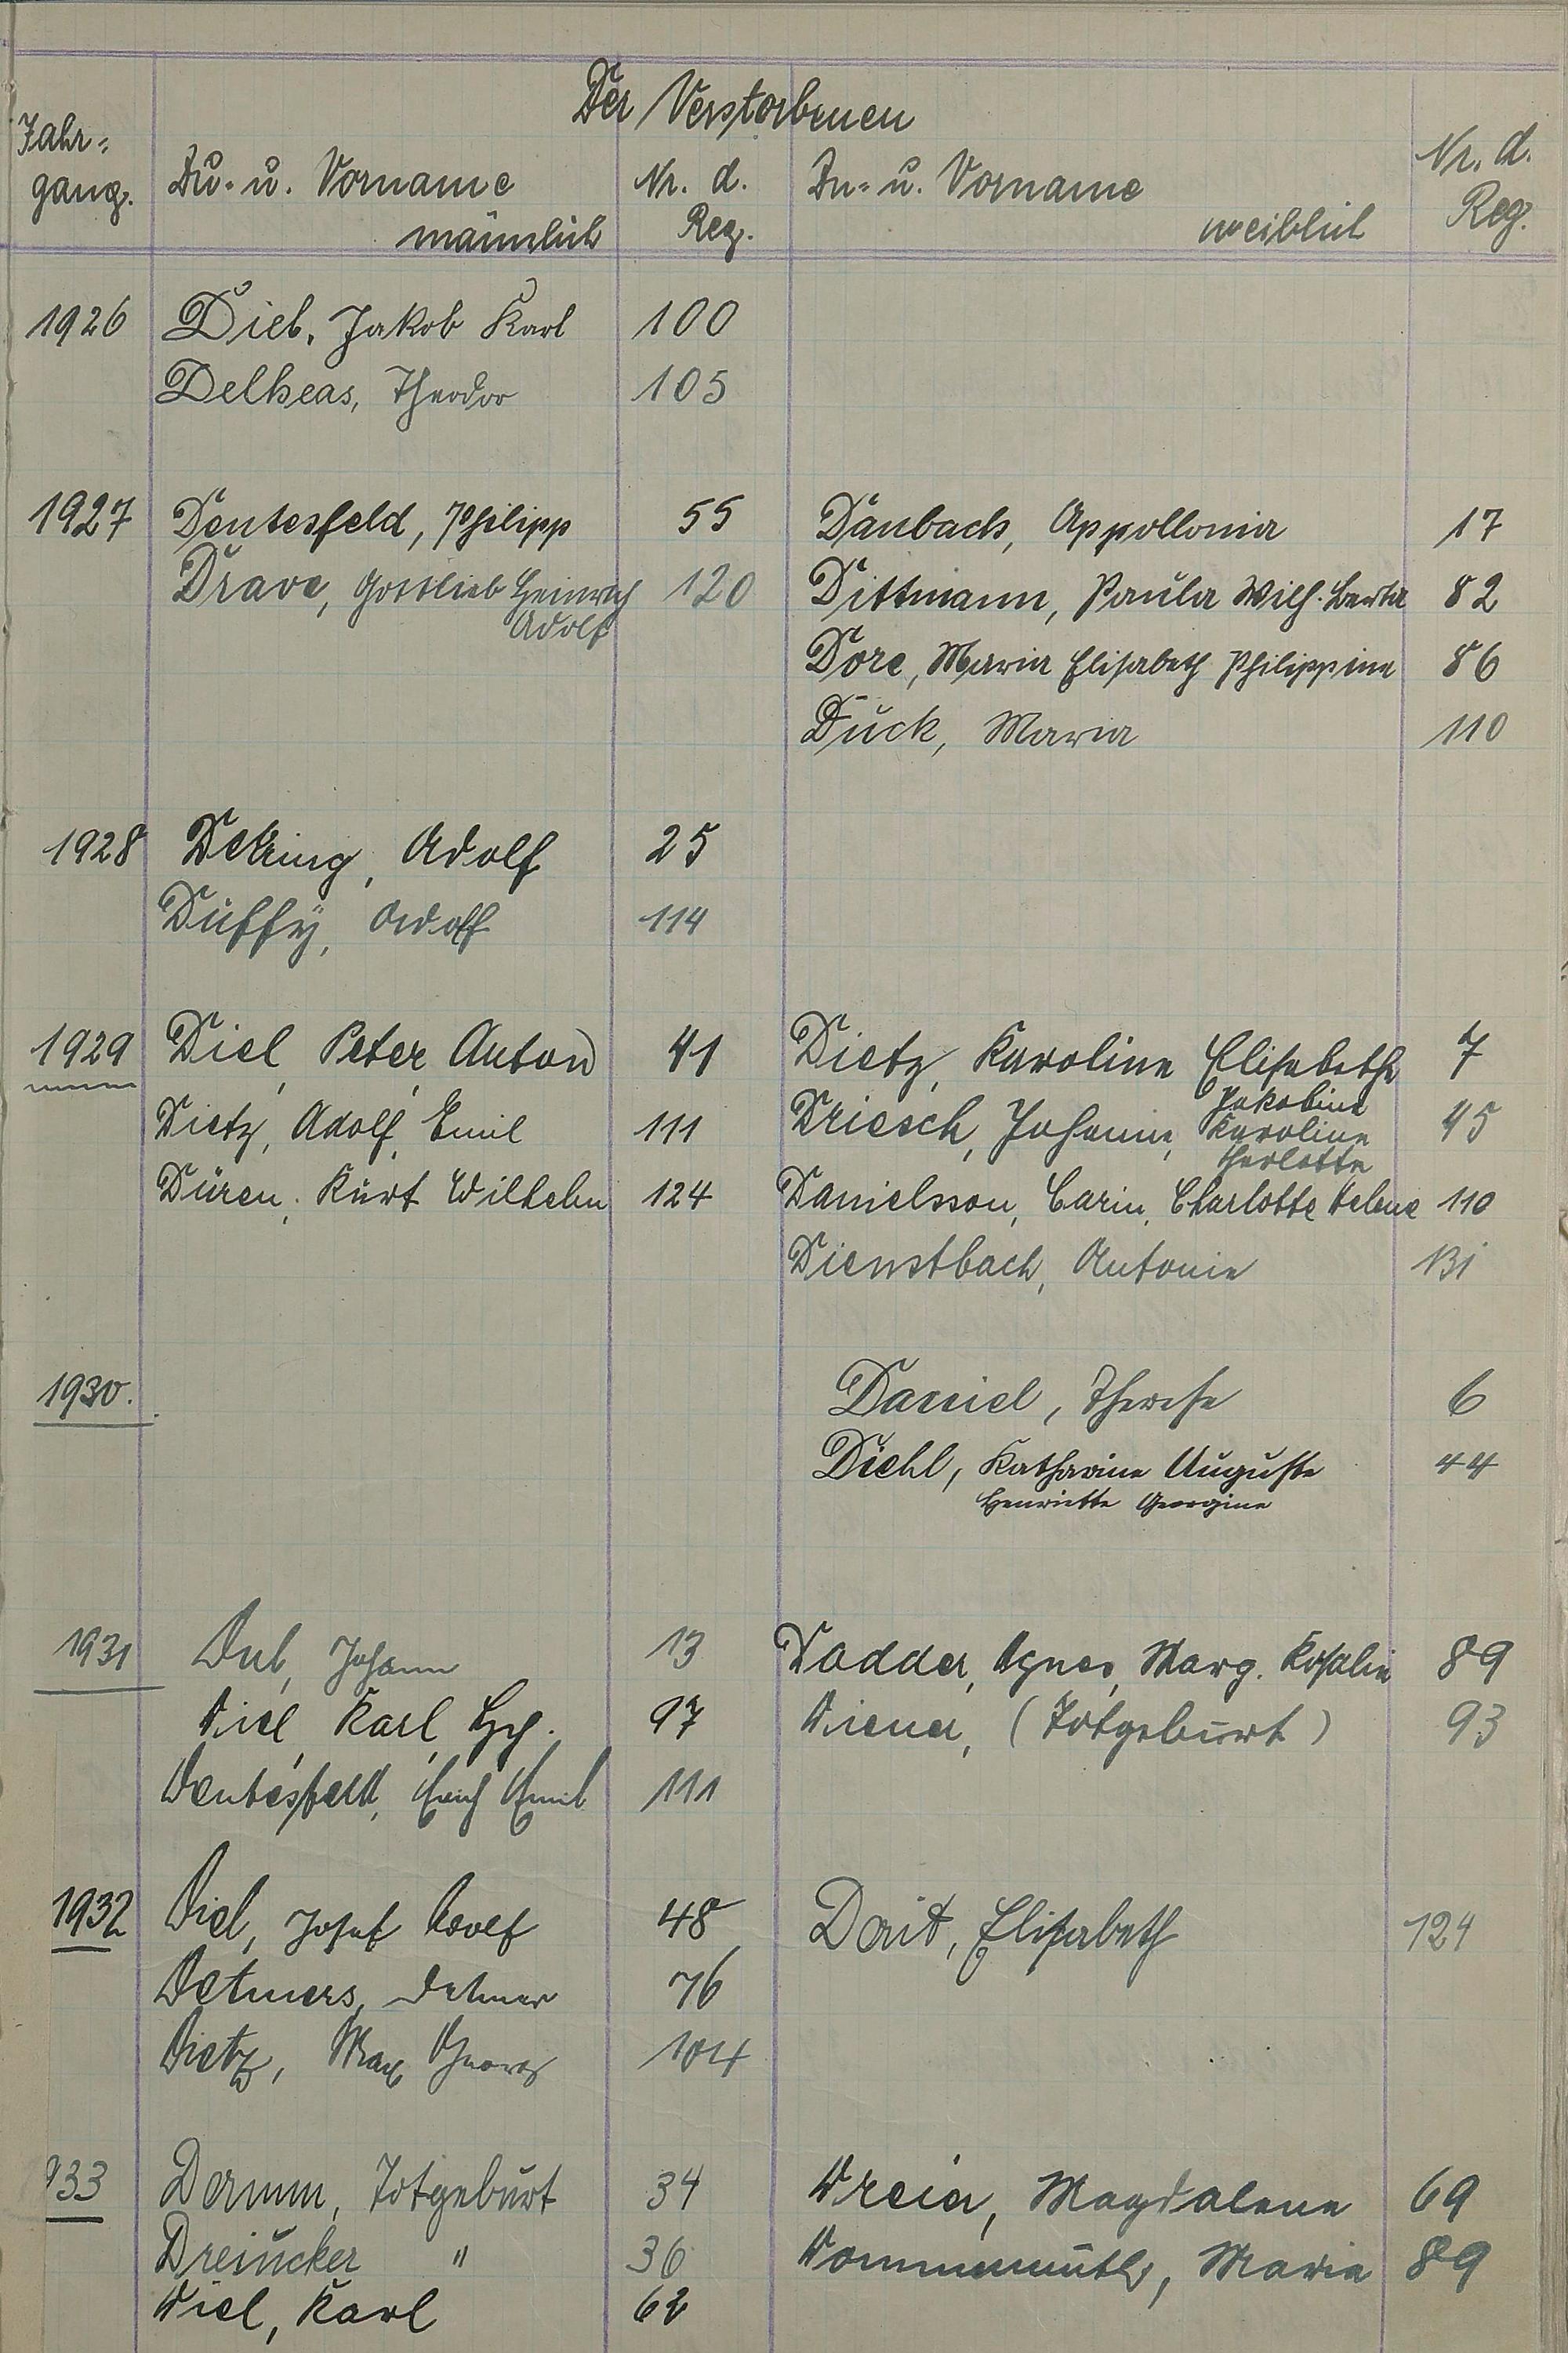 Der Verstorbenen
Jahr=
gang. Zu- u. Vorname männlich Nr. d. Reg. Zu- u. Vorname weiblich Nr. d. Reg.
1926 Dieb, Jakob Karl 100
Delheas, Theodor 105
1927 Dentesfeld, Philipp 55 Daubach, Appollonia 17
Drave, Gottlieb Heinrich 120 Dittmann, Paula Wilh. Berta 82
Adolf
Dore, Maria Elisabeth Philippine 86
Duck, Maria 110
1928 Dehring, Adolf 25
Duffy, Adolf 114
1929 Diel, Peter, Anton 41 Dietz, Karoline Elisabetha 7
Dietz, Adolf, Emil 111 Driesch, Johanna, Jakobine 45
Karoline
Charlotte
Düren, Kurt Wilhelm 124 Danielsson, Carin, Charlotte Helene 110
Dienstbach, Antonie 131
1930. Daniel, Therese 6
Diehl, Katharine Auguste 44
Henriette Georgine
1931 Dub, Johann 13 Dadder, Agnes, Marg. Rosalie 89
Diel, Karl, Hch. 97 Diener, (Totgeburt) 93
Dentesfeld, Erich Emil 111
1932 Diel, Josef Adolf 48 Dait, Elisabeth 124
Detmers, Detmer 76
Dietz, Max Georg 104
933 Damm, Totgeburt 34 Dreier, Magdalene 69
Dreiucker " 36 Dommermuth, Maria 89
Diel, Karl 62